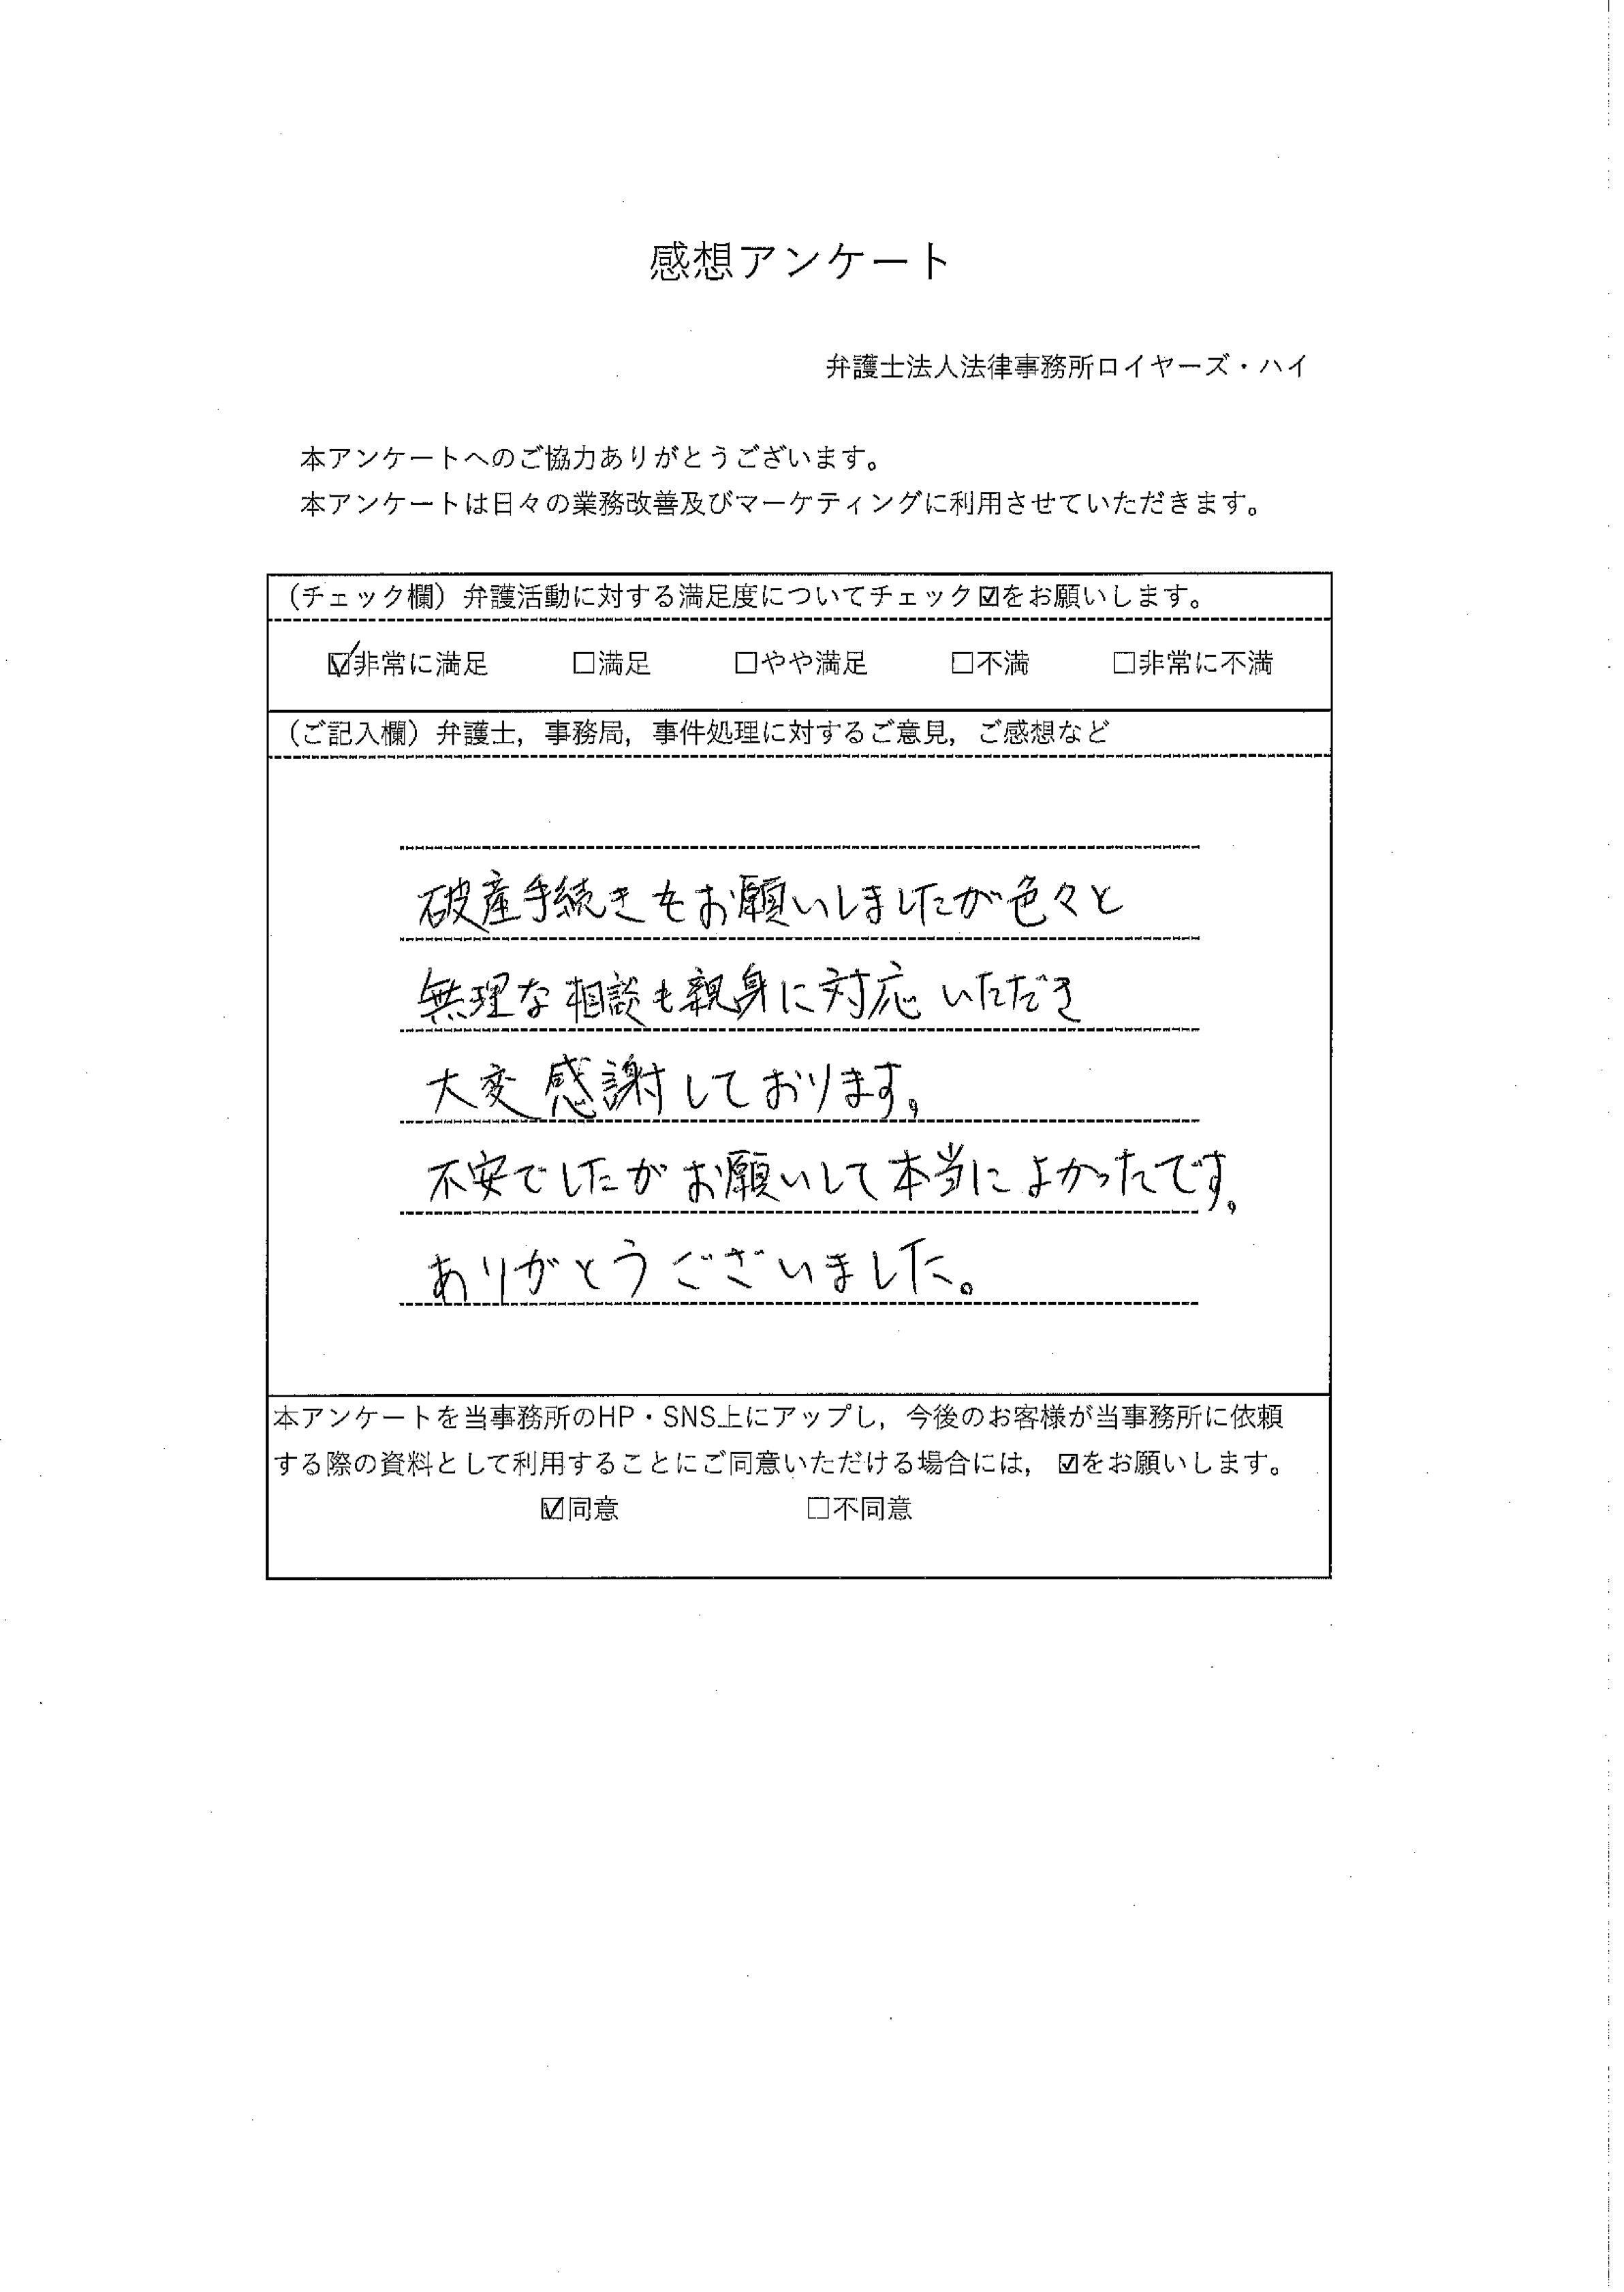 感想アンケート
弁護士法人法律事務所ロイヤーズ・ハイ
本アンケートへのご協力ありがとうございます。
本アンケートは日々の業務改善及びマーケティングに利用させていただきます。
（チェック欄）弁護活動に対する満足度についてチェック☑をお願いします。
☑非常に満足 □満足 □やや満足 □不満 □非常に不満
（ご記入欄）弁護士，事務局，事件処理に対するご意見，ご感想など
破産手続きをお願いしましたが色々と
無理な相談も親身に対応いただき
大変感謝しております。
不安でしたがお願いして本当によかったです。
ありがとうございました。
本アンケートを当事務所のHP・SNS上にアップし，今後のお客様が当事務所に依頼
する際の資料として利用することにご同意いただける場合には，☑をお願いします。
☑同意 □不同意